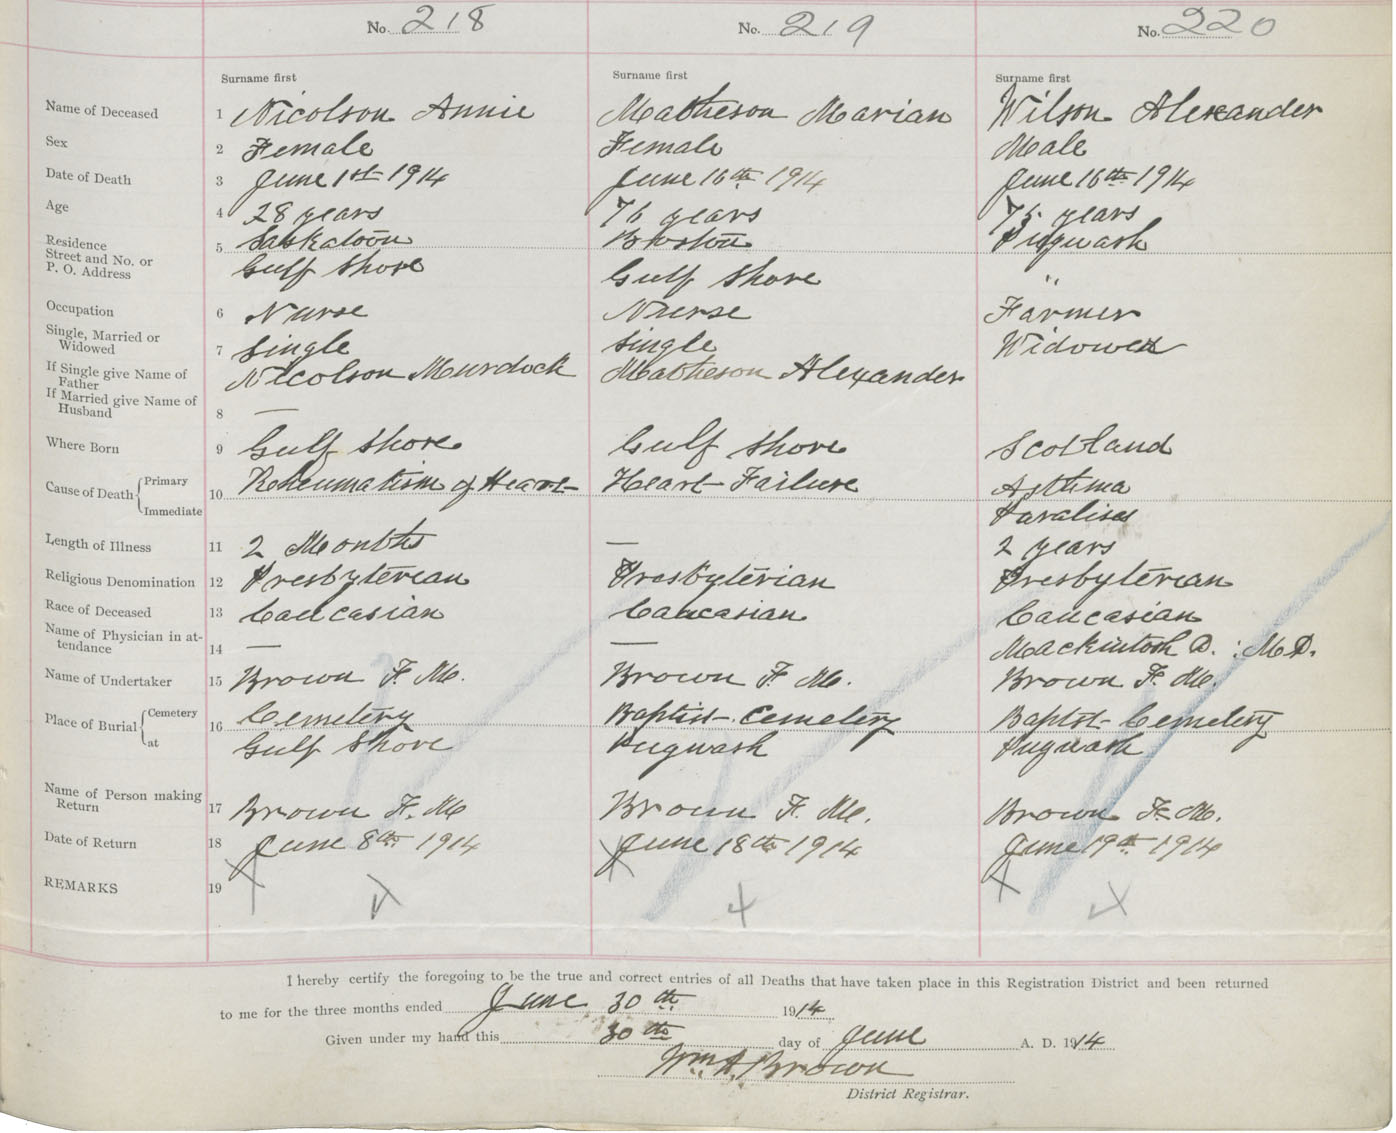 No. 218 No. 219 No. 220
Surname first Surname first Surname first
Name of Deceased 1 Nicolson Annie Matheson Marian Wilson Alexander
Sex 2 Female Female Male
Date of Death 3 June 1st 1914 June 16th 1914 June 16th 1914
Age 4 28 years 76 years 75 years
Residence 5 Saskatoon Boston Pugwash
Street and No. or
P. O. Address Gulf Shore Gulf Shore "
Occupation 6 Nurse Nurse Farmer
Single, Married or
Widowed 7 Single Single Widowed
If Single give Name of
Father Nicolson Murdock Matheson Alexander
If Married give Name of
Husband 8 —
Where Born 9 Gulf Shore Gulf Shore Scotland
Cause of Death Primary 10 Rheumatism of Heart Heart Failure Asthma
Immediate Paralises
Length of Illness 11 2 Months — 2 years
Religious Denomination 12 Presbyterian Presbyterian Presbyterian
Race of Deceased 13 Caucasian Caucasian Caucasian
Name of Physician in at-
tendance 14 — — Mackintosh D. : M.D.
Name of Undertaker 15 Brown F. M. Brown F. M. Brown F. M.
Place of Burial Cemetery 16 Cemetery Baptist Cemetery Baptist Cemetery
at Gulf Shore Pugwash Pugwash
Name of Person making
Return 17 Brown F. M Brown F. M. Brown F. M.
Date of Return 18 June 8th 1914 June 18th 1914 June 19th 1914
REMARKS 19
I hereby certify the foregoing to be the true and correct entries of all Deaths that have taken place in this Registration District and been returned
to me for the three months ended June 30th 1914
Given under my hand this 30th day of June A. D. 1914
Wm A. Brown
District Registrar.